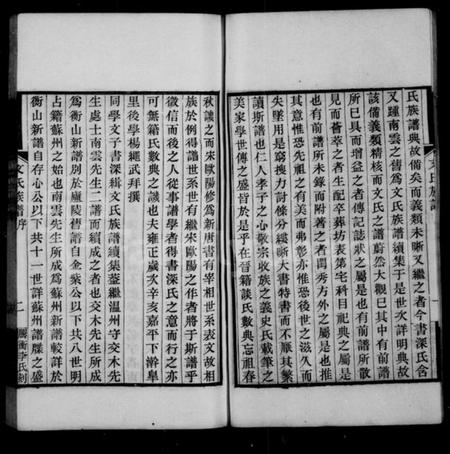 氏族譜典故備矣而義類未晰又繼之者今書深氏含
又踵南雲之舊為文氏族譜續集于是世次詳明典故
該備義類精核而文氏之譜蔚然大觀巳其中有前譜
所巳具而增益之者傳記誌狀之屬是也有前譜所散
見而薈萃之者生配卒葬坊表第宅科目祀典之屬是
也有前譜所未錄而附著之者閨秀方外之屬是也推
其意惟恐先祖之有美而弗彰亦惟恐後世之滋久而
失墜用是窮搜力討條分縷晰大書特書而不厭其繁
讀斯譜也仁人孝子之心敬宗收族之義史氏載筆之
美家學世傳之盛皆於是乎在昔籍談氏數典忘祖春
秋譏之而宋歐陽修為新唐書有宰相世系表文故相
族於例得譜世系世有繼宋歐陽之作者將于斯譜乎
徵信而後之人從事譜學者得書深氏之意而行之亦
可無籍氏數典之譏也夫雍正歲次辛亥嘉平下澣皐
里後學楊繩武拜撰
同學文子書深緝文氏族譜續集葢繼溫州守交木先
生處士南雲先生二譜而續成之者也交木先生所成
為衡山新譜別於廬陵舊譜自金蘂公以下共八世明
占籍蘇州之始也南雲先生所成為蘇州新譜較詳於
衡山新譜自存心公以下共十一世詳蘇州譜牒之盛
文氏族譜
文氏族譜序
二